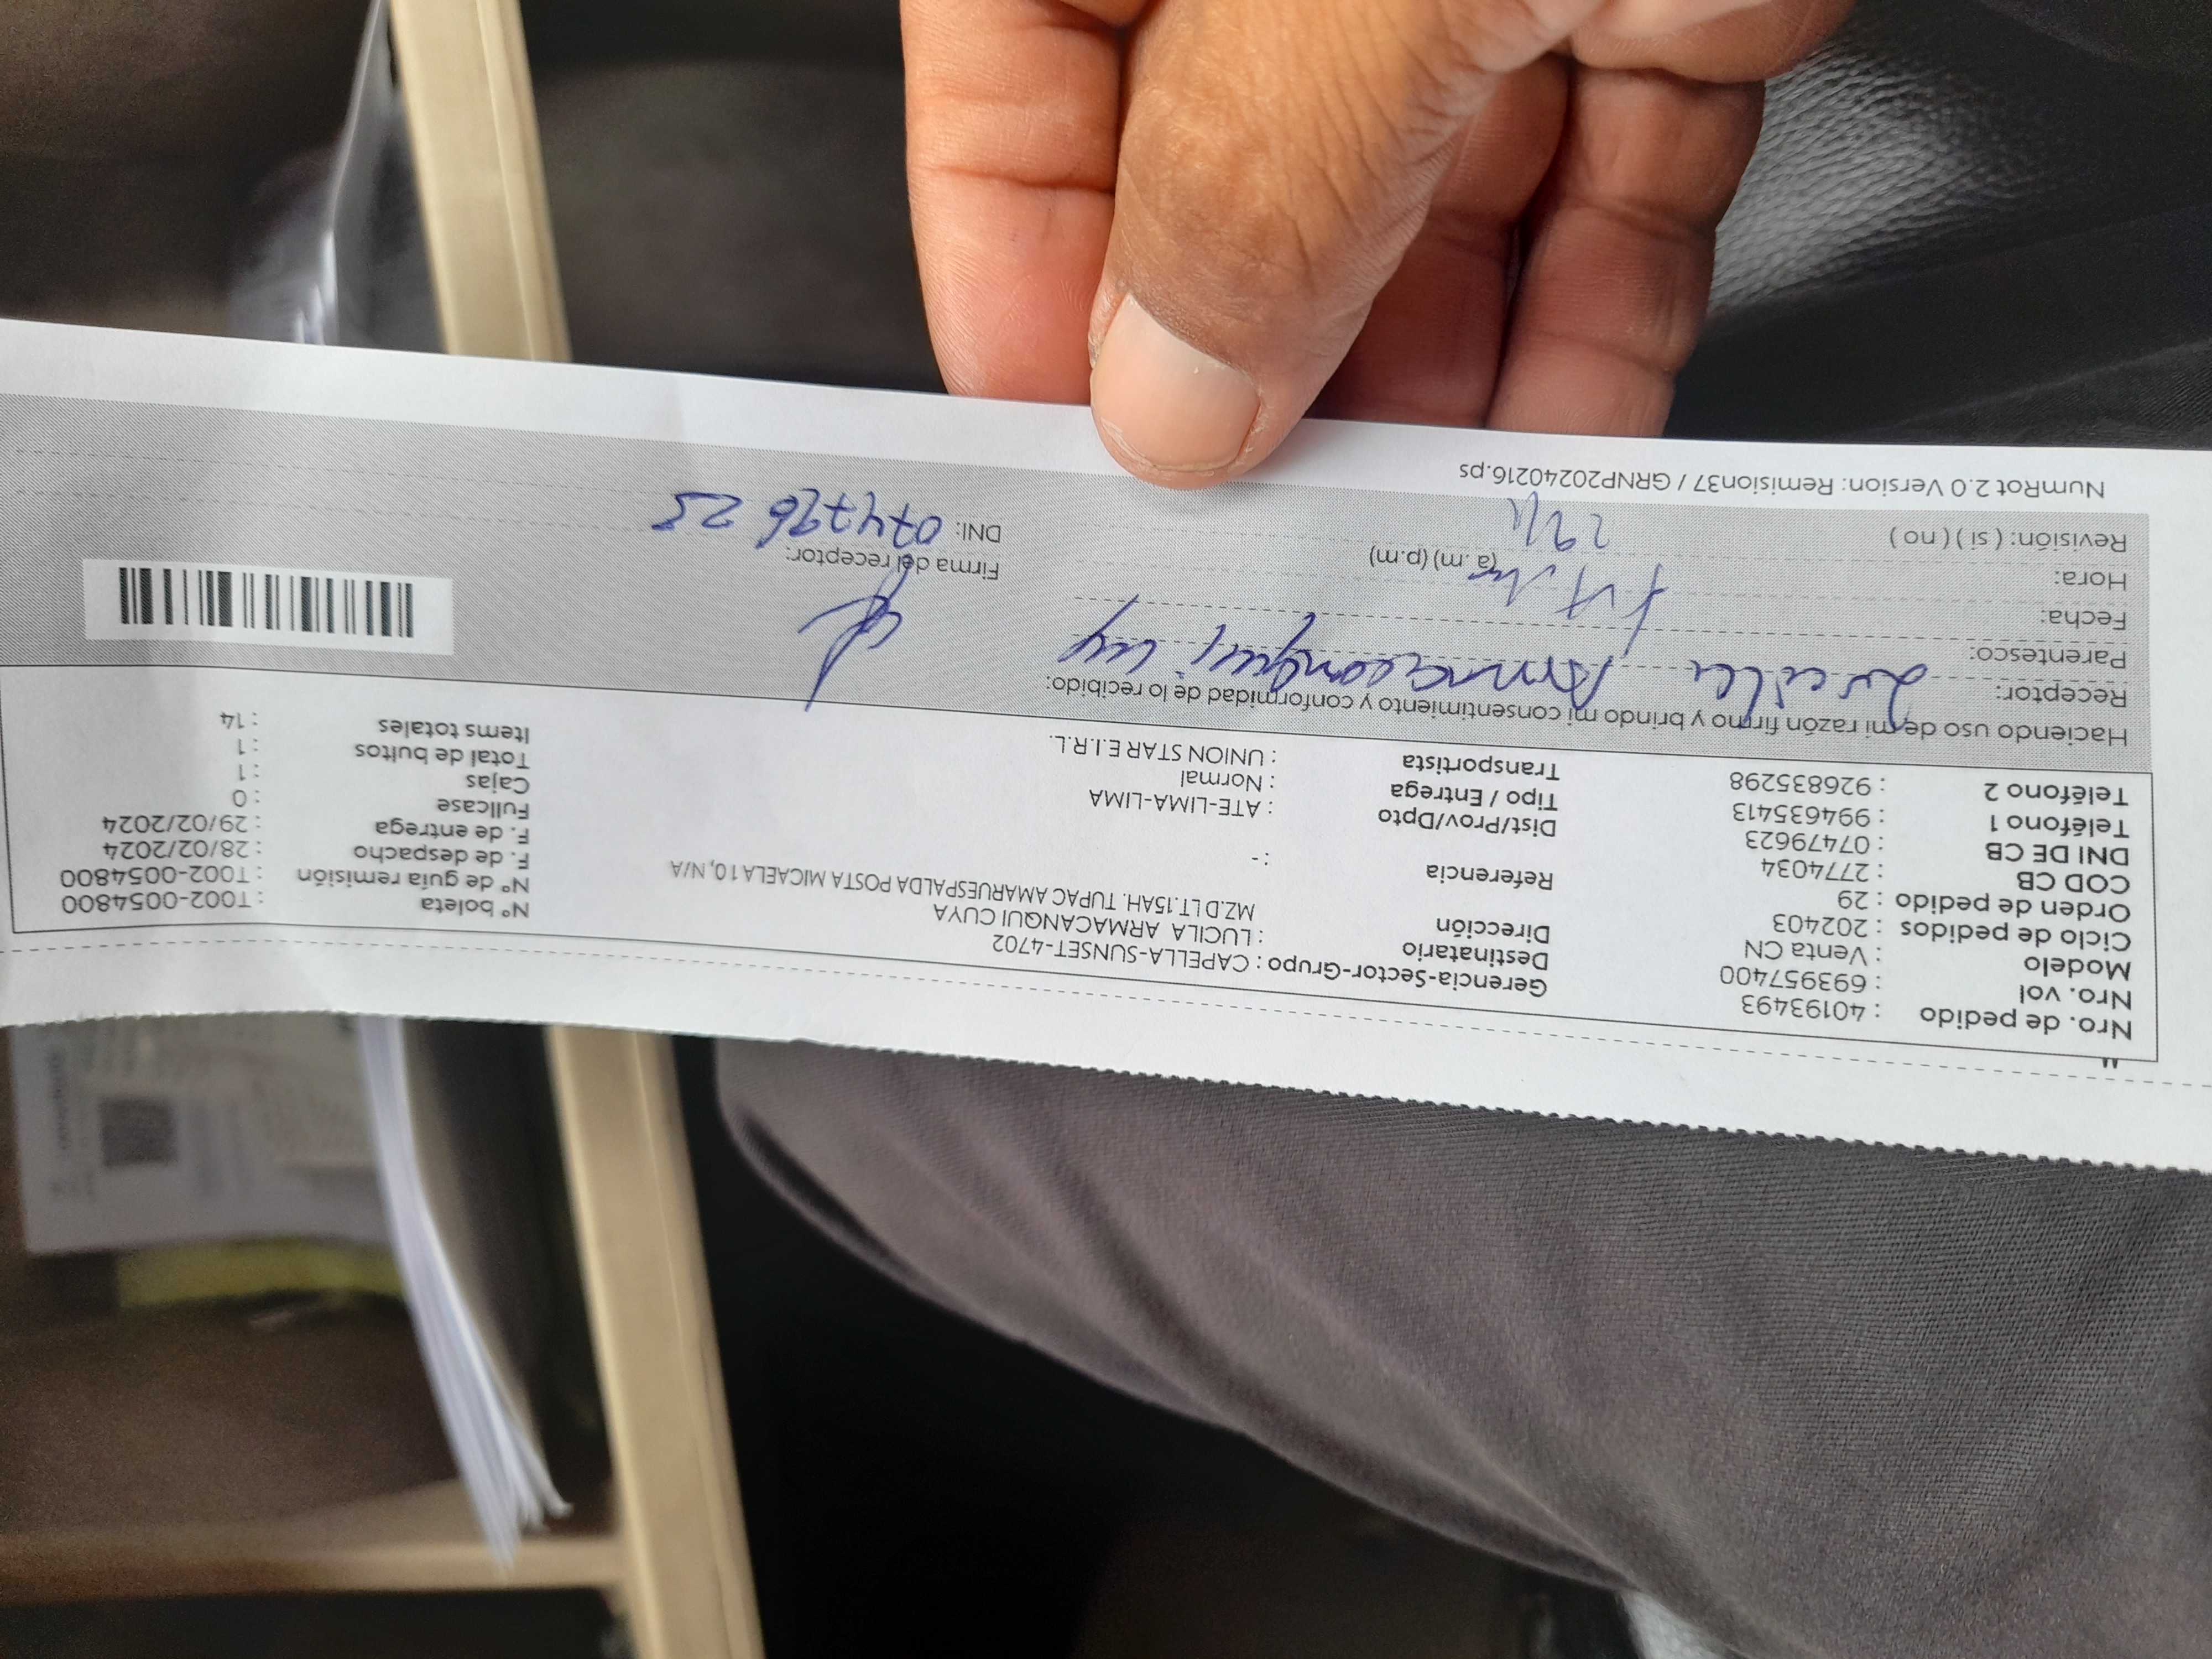 Nro. de pedido : 40193493 Gerencia-Sector-Grupo : CAPELLA-SUNSET-4702 N° boleta : T002-0054800
Nro. vol : 693957400 Destinatario : LUCILA ARMACANQUI CUYA N° de guia remisión : T002-0054800
Modelo : Venta CN Dirección MZ.D LT.15AH. TUPAC AMARUESPALDA POSTA MICAELA 10, N/A F. de despacho : 28/02/2024
Ciclo de pedidos : 202403 F. de entrega : 29/02/2024
Orden de pedido : 29 Referencia : - Fullcase : 0
COD CB : 2774034 Cajas : 1
DNI DE CB : 07479623 Dist/Prov/Dpto : ATE-LIMA-LIMA Total de bultos : 1
Teléfono 1 : 994635413 Tipo / Entrega : Normal Items totales : 14
Teléfono 2 : 926835298 Transportista : UNION STAR E.I.R.L.
Haciendo uso de mi razón firmo y brindo mi consentimiento y conformidad de lo recibido:
Receptor: Lucila Armacanqui
Parentesco:
Fecha:
Hora: (a.m) (p.m) Firma del receptor:
Revisión: ( si ) ( no ) DNI:
NumRot 2.0 Version: Remision37 / GRNP20240216.ps